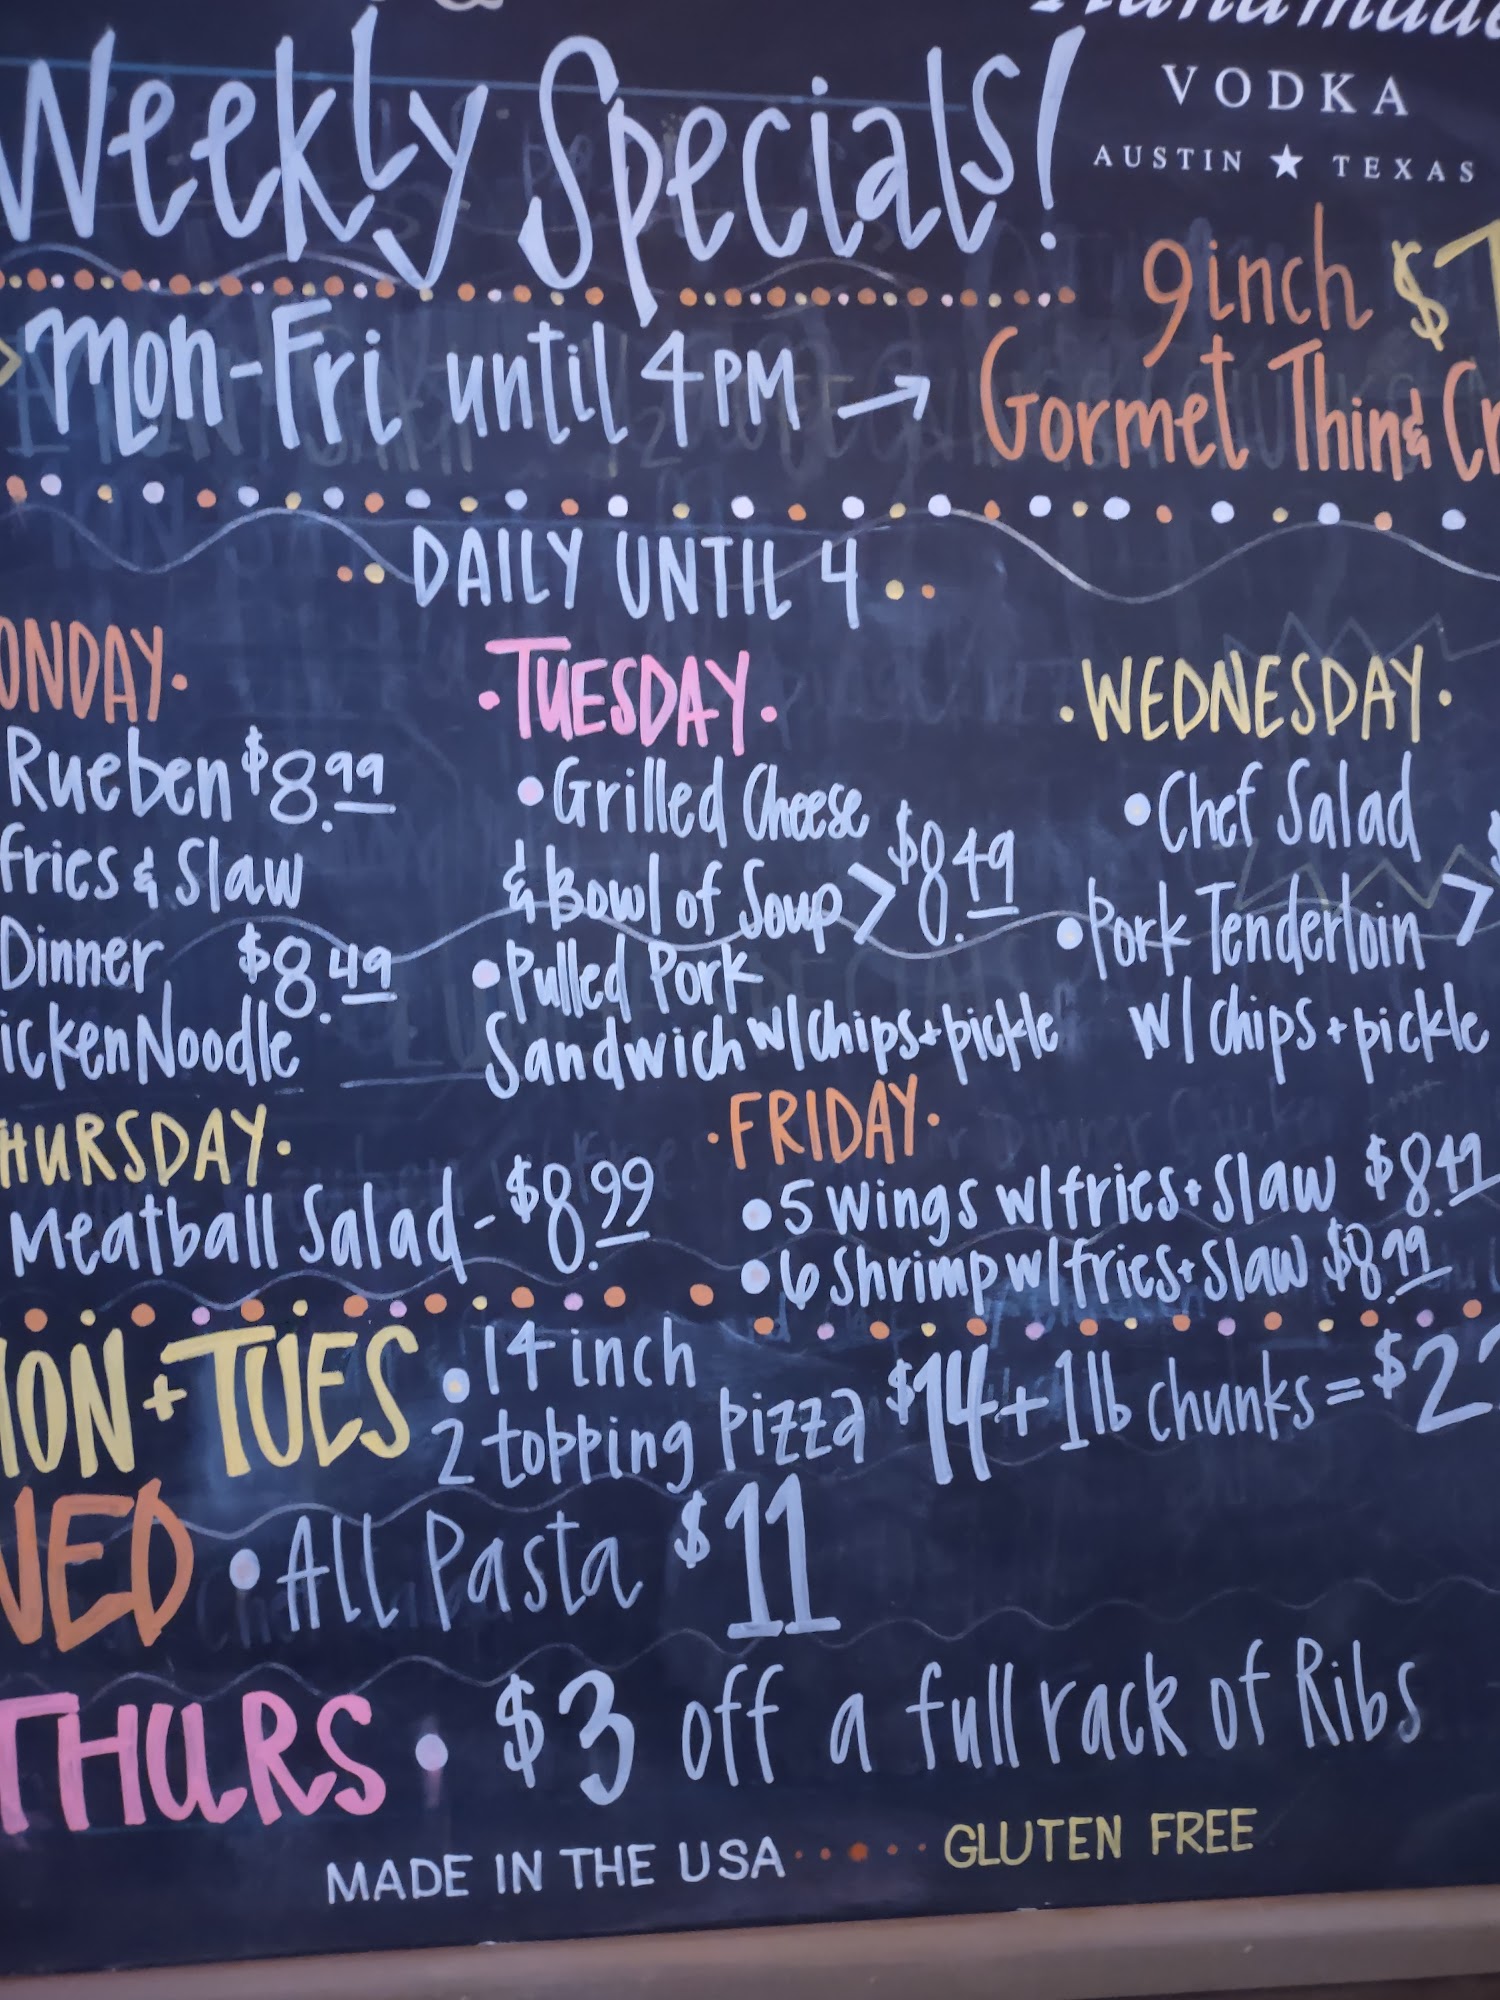 Handmade
VODKA
AUSTIN ★ TEXAS
Weekly Specials!
9inch $
Mon-Fri until 4PM → Gormet Thin & Cr
DAILY UNTIL 4
ONDAY.
Rueben $8.99
fries & Slaw
Dinner $8.49
icken Noodle
· TUESDAY ·
• Grilled Cheese
& Bowl of Soup > $8.49
• Pulled Pork
Sandwich w/ chips + pickle
· WEDNESDAY ·
• Chef Salad
• Pork Tenderloin >
w/ chips + pickle
HURSDAY.
Meatball Salad - $8.99
· FRIDAY ·
• 5 wings w/ fries + Slaw $8.49
• 6 Shrimp w/ fries + Slaw $8.99
ON + TUES • 14 inch
2 topping pizza $14 + 1lb chunks = $2
ED • All Pasta $11
THURS • $3 off a full rack of Ribs
MADE IN THE USA ····· GLUTEN FREE